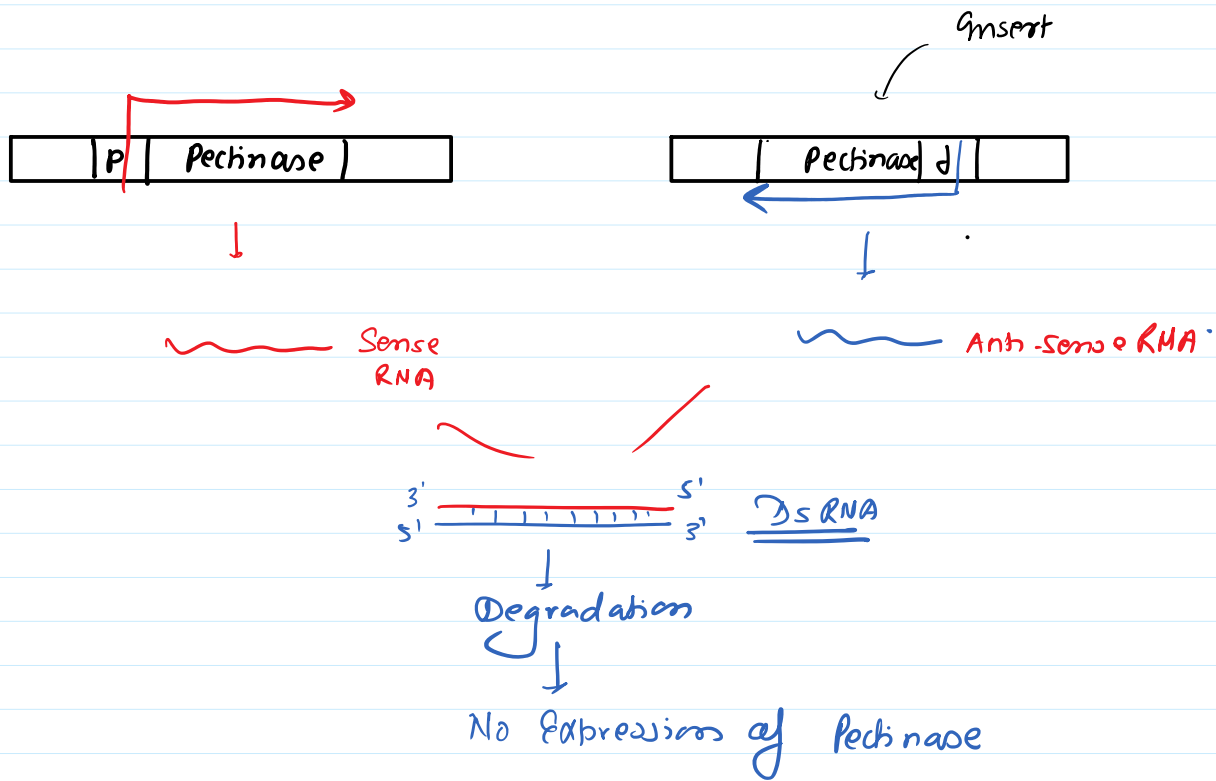 Insert
P Pectinase
Pectinase d
Sense
RNA
Anti-sense RNA
3' 5'
5' 3'
Ds RNA
Degradation
No Expression of Pectinase